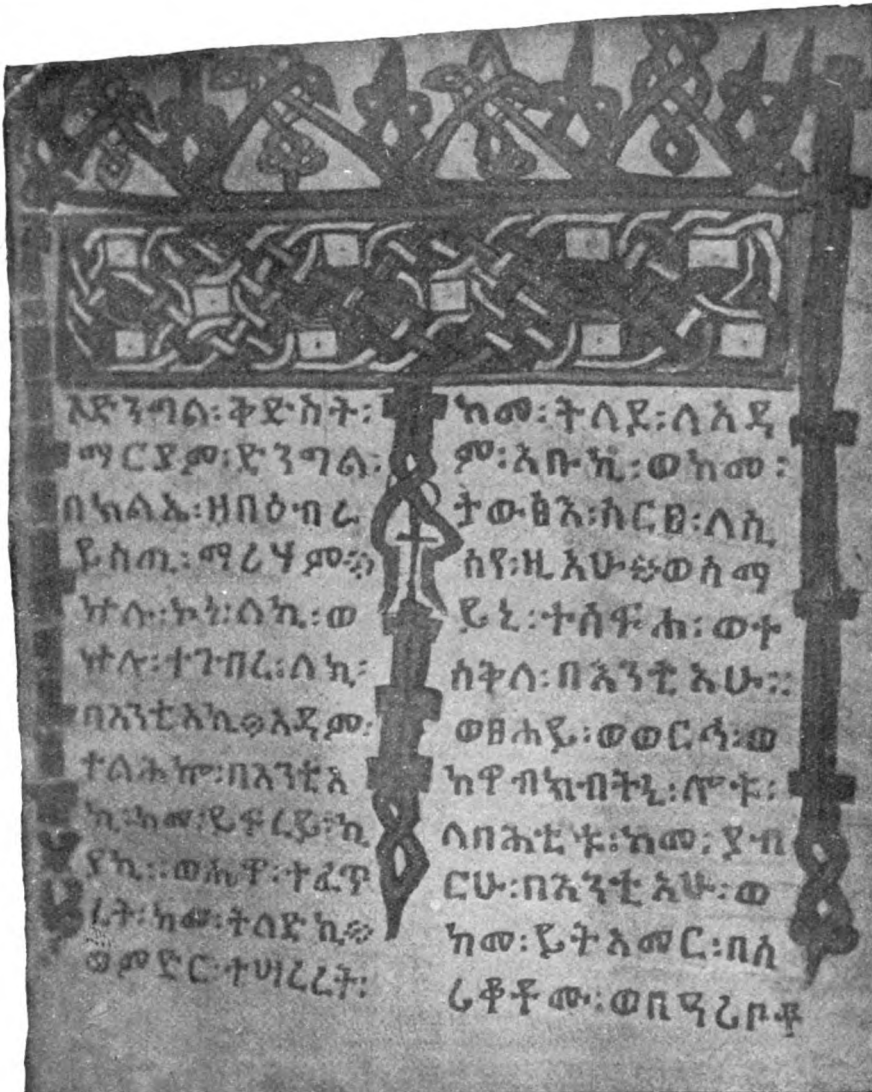 ኦድንግል፡ቅድስት፡
ማርያም፡ድንግል፡
በካልኤ፡ዘበዕብራ
ይስጢ፡ማሪሃም፨
ኵሉ፡ኮነ፡ለኪ፡ወ
ኵሉ፡ተገብረ፡ለኪ፡
በእንቲአኪ፨አዳም፡
ተልሕኰ፡በእንቲአ
ኪ፡ከመ፡ይፍረይ፡ኪ
ያኪ፡፡ወሔዋ፡ተፈጥ
ረት፡ከመ፡ትለድኪ፨
ወምድር፡ተሣረረት፡
ከመ፡ትለደ፡ለአዳ
ም፡አቡኪ፡ወከመ፡
ትውፅእ፡ሰርፀ፡ለሲ
ሰየ፡ዚአሁ፨ወሰማ
ይኒ፡ተሰፍሐ፡ወተ
ሰቅለ፡በእንቲአሁ፡፡
ወፀሐይ፡ወወርኅ፡ወ
ከዋብክብትኒ፡ሎቱ፡
ለባሕቲቱ፡ከመ፡ያብ
ርሁ፡በእንቲአሁ፡ወ
ከመ፡ይትአመር፡በአ